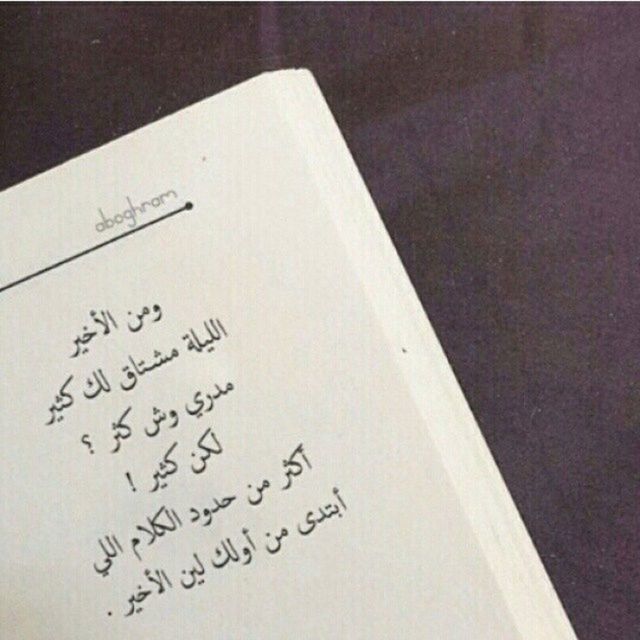 aboghram
ومن الأخير
الليلة مشتاق لك كثير
مدري وش كثر ؟
لكن كثير !
أكثر من حدود الكلام اللي
أبتدى من أولك لين الأخير .